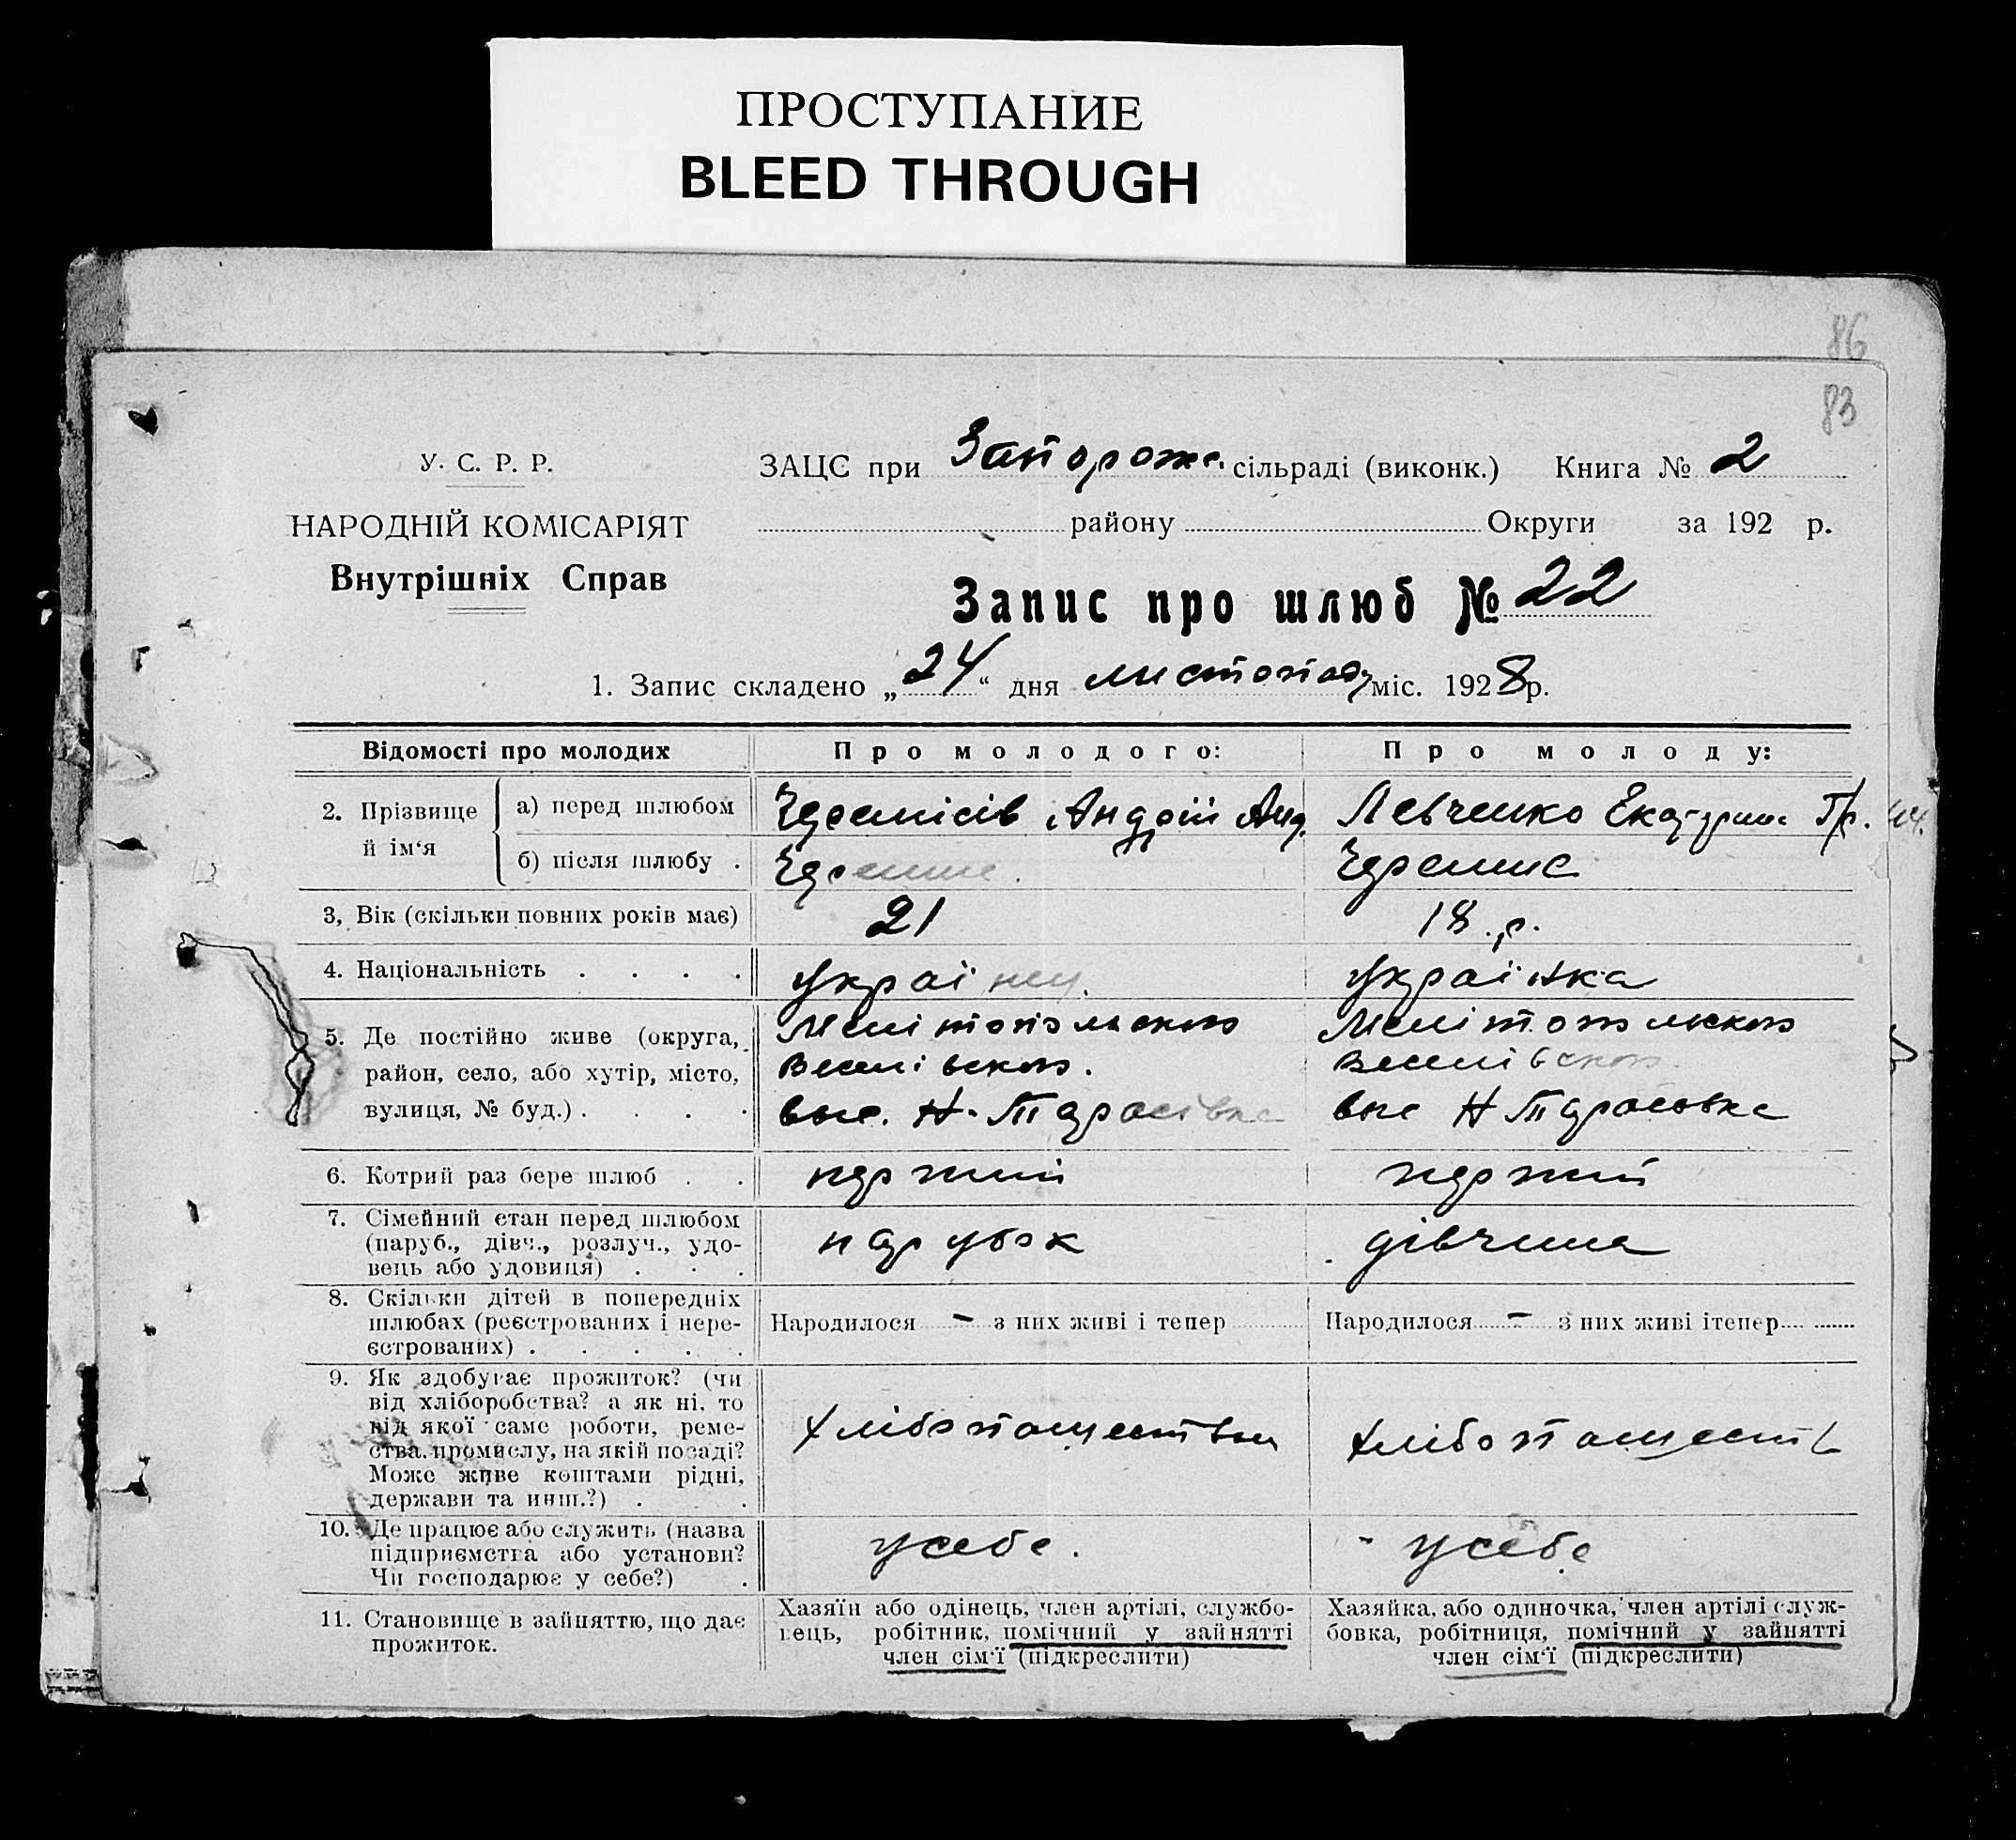 ПРОСТУПАНИЕ
BLEED THROUGH
86
83
У. С. Р. Р.
НАРОДНІЙ КОМІСАРІЯТ
Внутрішніх Справ
ЗАЦС при Запорожс. сільраді (виконк.) Книга № 2
району Округи за 192 р.
Запис про шлюб № 22
1. Запис складено „24“ дня листопаду міс. 1928 р.
Відомості про молодих
Про молодого:
Про молоду:
2. Прізвище й ім‘я
а) перед шлюбом
Андрій Анд.
Левченко Екатерина Гр.
б) після шлюбу .
3, Вік (скільки повних років має)
21
18 .р.
4. Національність . . . .
Українец.
Українка
5. Де постійно живе (округа,
район, село, або хутір, місто,
вулиця, № буд.) . . . .
Мелітопольської
Веселівської.
выс. Н-Тарасівка
Мелітопольської
Веселівської
выс Н Тарасовка
6. Котрий раз бере шлюб . .
перший
перший
7. Сімейний стан перед шлюбом
(паруб., дівч., розлуч., удо-
вець або удовиця) . . .
парубок
дівчина
8. Скільки дітей в попередніх
шлюбах (реєстрованих і нере-
єстрованих) . . . . .
Народилося – з них живі і тепер
Народилося – з них живі ітепер
9. Як здобуває прожиток? (чи
від хліборобства? а як ні, то
від якої саме роботи, реме-
ства, промислу, на якій посаді?
Може живе коштами рідні,
держави та инш.?) . .
10. Де працює або служить (назва
підприємства або установи?
Чи господарює у себе?) .
усебе.
усебе
11. Становище в зайняттю, що дає
прожиток.
Хазяїн або одінець, член артілі, службо-
вець, робітник, помічний у зайнятті
член сім‘ї (підкреслити)
Хазяйка, або одиночка, член артілі служ-
бовка, робітниця, помічний у зайнятті
член сім‘ї (підкреслити)